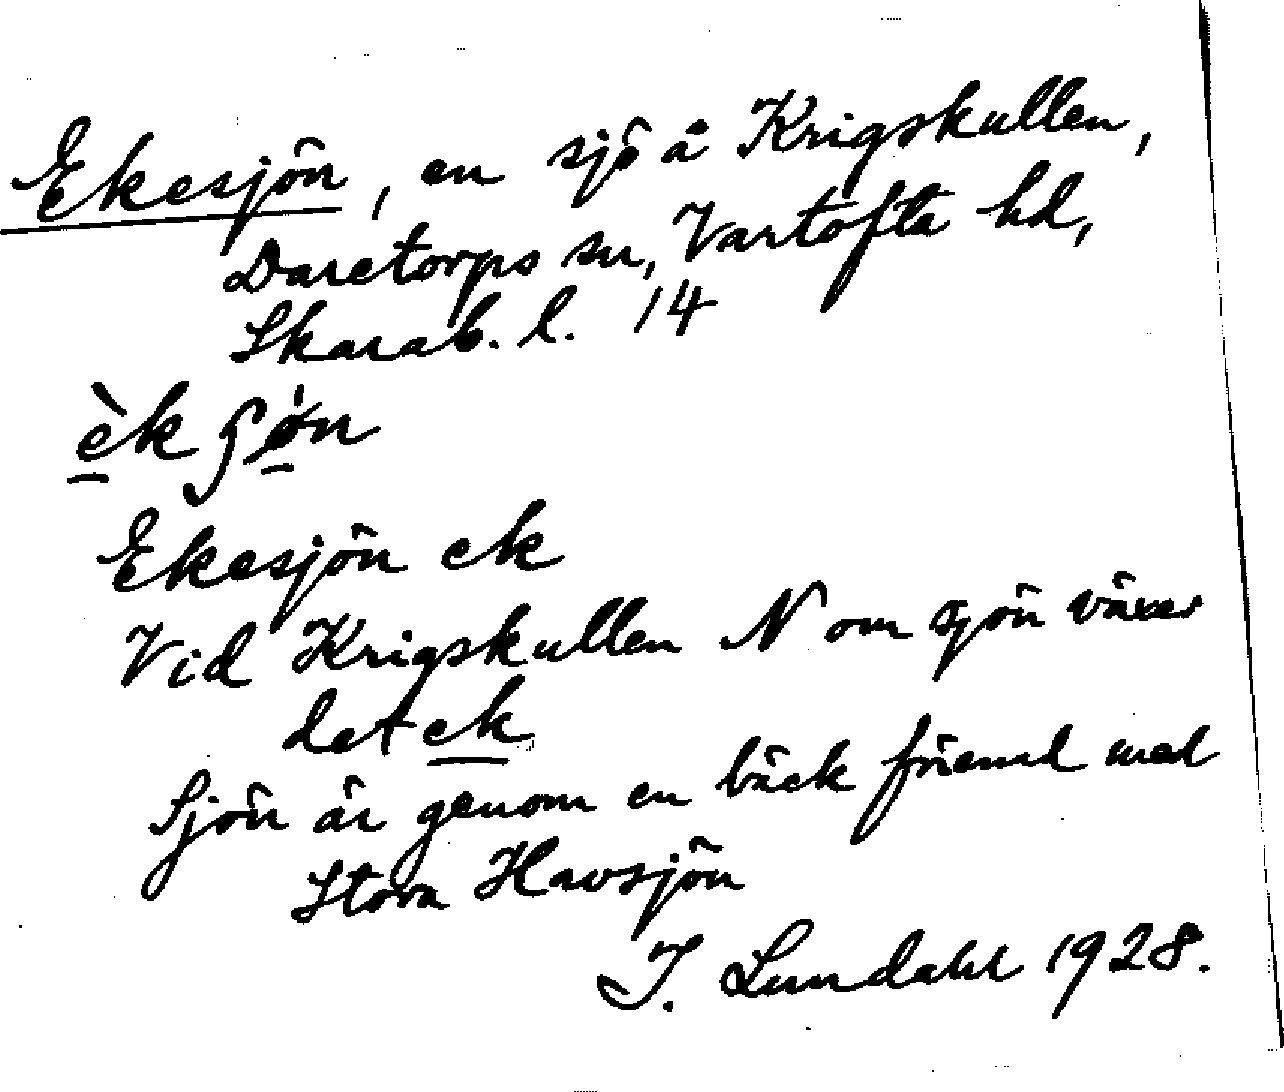 Ekesjön, en sjö å Krigskullen,
Daretorps sn, Vartofta hd,
Skarab. l. 14
Ekesjön ek
Vid Krigskullen N om sjön växer
det ek
Sjön är genom en bäck förend med
Stora Havsjön
I. Lundahl 1928.